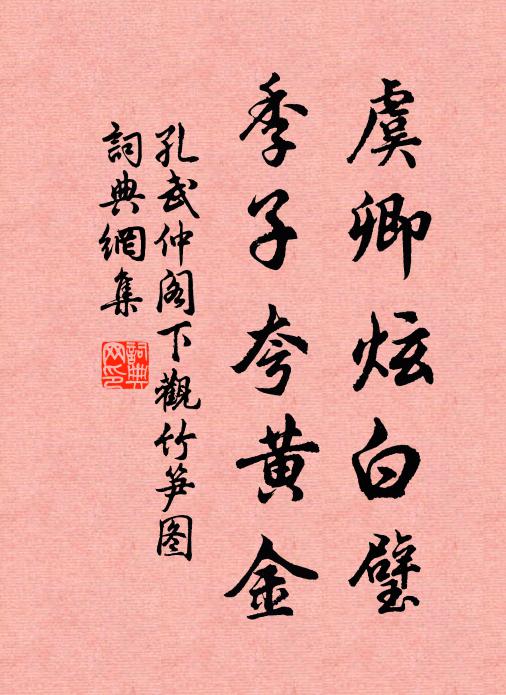 虞卿炫白璧
季子夸黄金
孔武仲阁下觀竹笋图
詞典網集
詞典網印